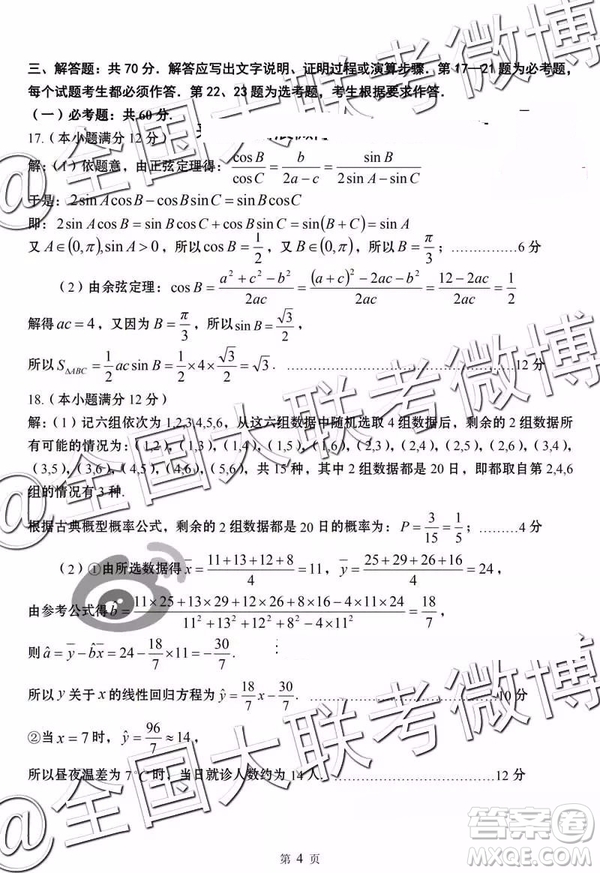 三、解答题：共 70 分．解答应写出文字说明、证明过程或演算步骤．第 17—21 题为必考题，
每个试题考生都必须作答．第 22、23 题为选考题，考生根据要求作答．
（一）必考题：共 60 分．
17.（本小题满分 12 分）
解：（1）依题意，由正弦定理得：cosB/cosC = b/(2a−c) = sinB/(2sinA−sinC)
于是：2sinAcosB−cosBsinC=sinBcosC
即：2sinAcosB=sinBcosC+cosBsinC=sin(B+C)=sinA
又 A∈(0,π),sinA>0，所以cosB=1/2，又B∈(0,π)，所以B=π/3；……………6 分
（2）由余弦定理：cosB=(a²+c²−b²)/2ac=((a+c)²−2ac−b²)/2ac=(12−2ac)/2ac=1/2
解得 ac=4，又因为 B=π/3，所以sinB=√3/2，
所以 S△ABC=1/2 ac sinB=1/2×4×√3/2=√3．……………12 分
18.（本小题满分 12 分）
解：（1）记六组依次为 1,2,3,4,5,6，从这六组数据中随机选取 4 组数据后，剩余的 2 组数据所
有可能的情况为：（1,2），（1,3），（1,4），（1,5），（1,6），（2,3），（2,4），（2,5），（2,6），（3,4），
（3,5），（3,6），（4,5），（4,6），（5,6），共 15 种，其中 2 组数据都是 20 日，即都取自第 2,4,6
组的情况有 3 种．
根据古典概型概率公式，剩余的 2 组数据都是 20 日的概率为：P=3/15=1/5；………4 分
（2）①由所选数据得x̄=(11+13+12+8)/4=11，ȳ=(25+29+26+16)/4=24，
由参考公式得b̂=(11×25+13×29+12×26+8×16−4×11×24)/(11²+13²+12²+8²−4×11²)=18/7，
则â=ȳ−b̂x̄=24−18/7×11=−30/7．
所以 y 关于 x 的线性回归方程为ŷ=18/7x−30/7．……………10 分
②当x=7时，ŷ=96/7≈14，
所以昼夜温差为 7℃时，当日就诊人数约为 14 人．……………12 分
第 4 页
@全国大联考微博
答案卷
MXQE.COM